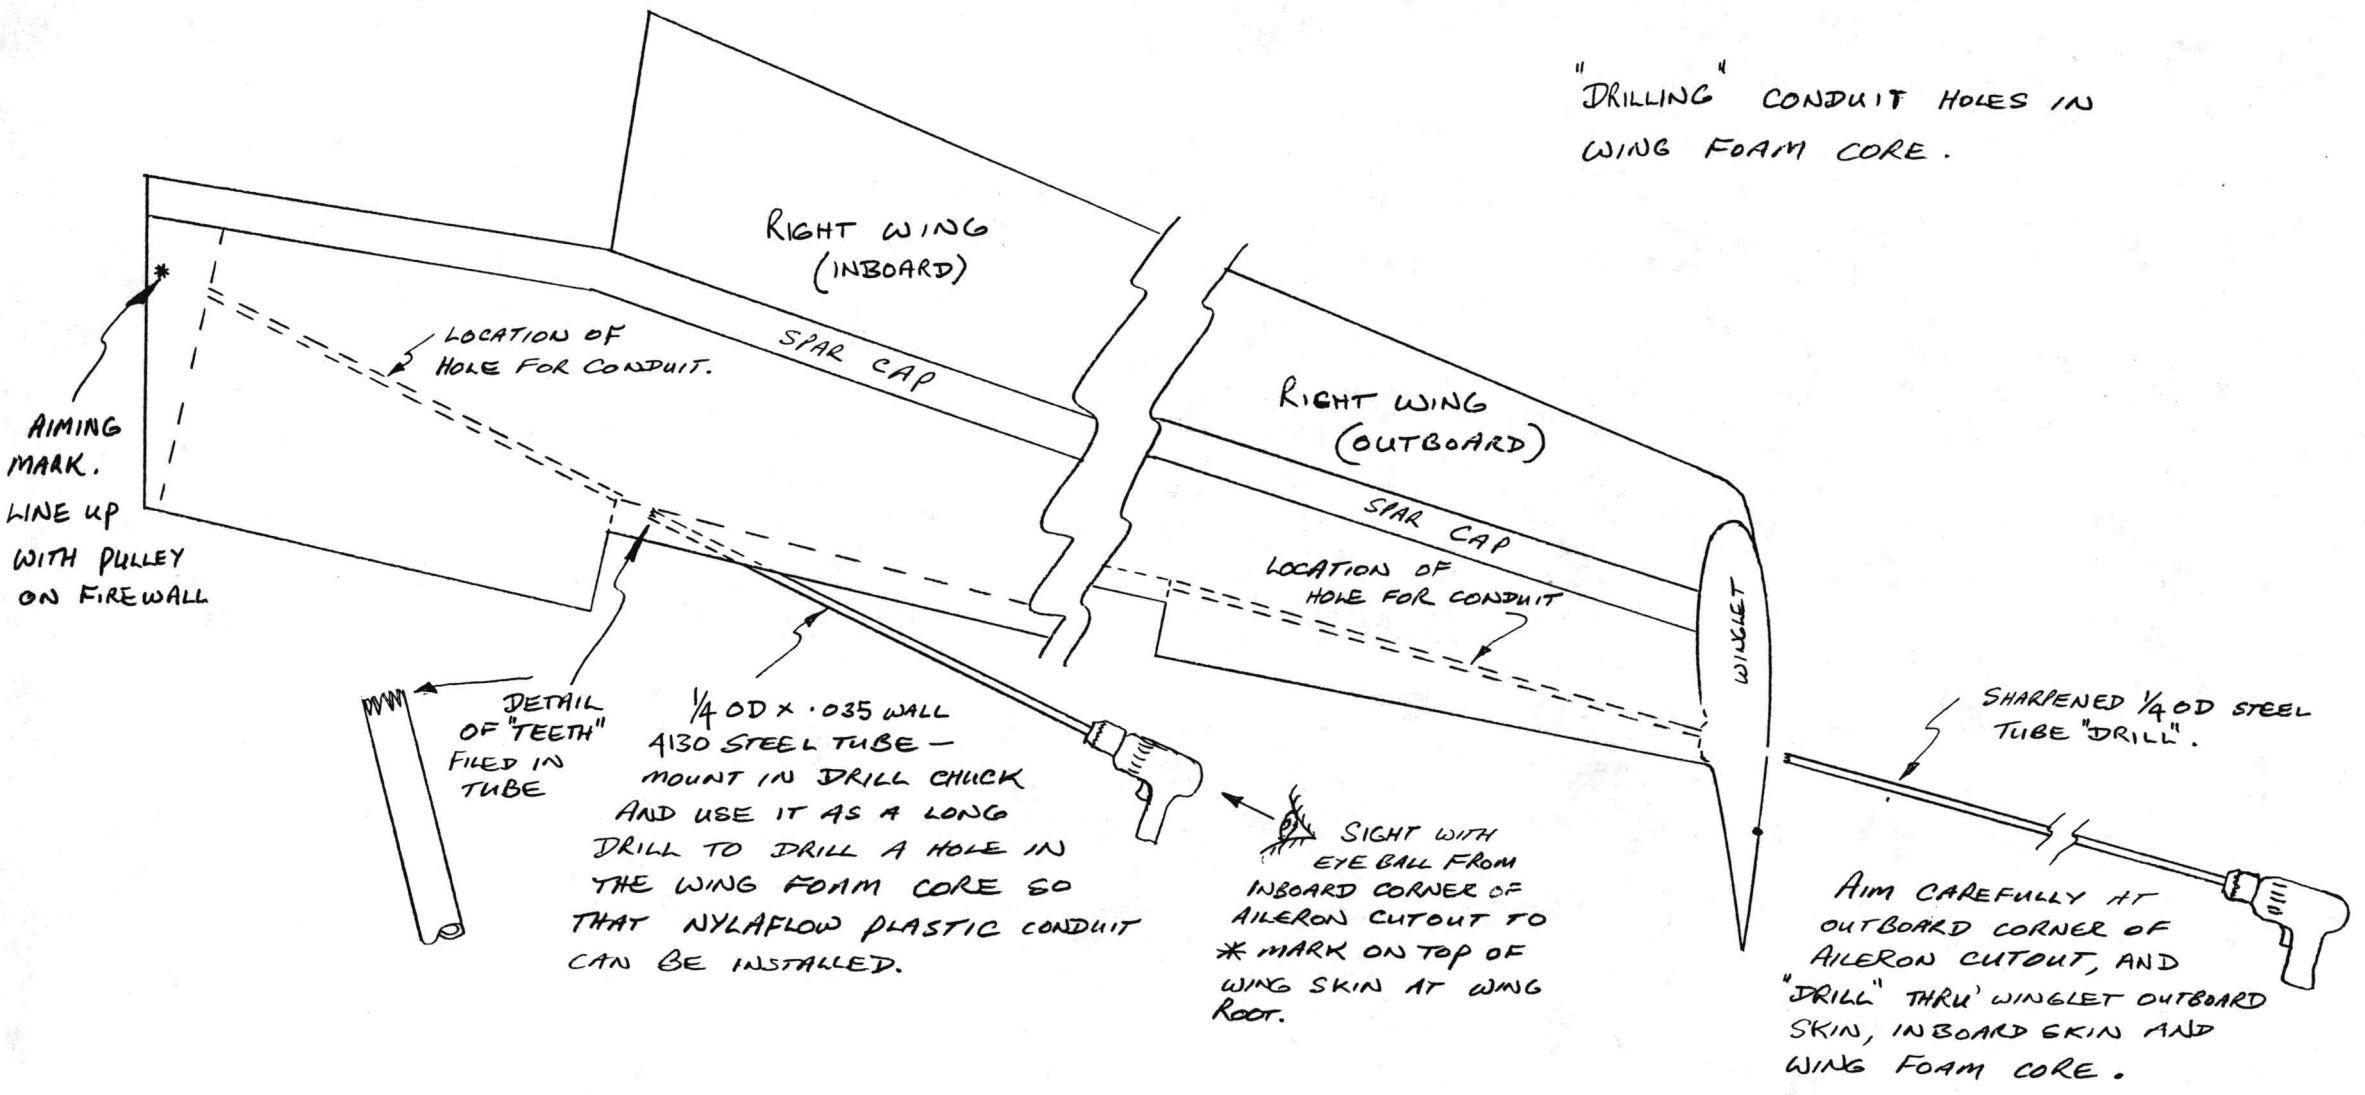 "DRILLING" CONDUIT HOLES IN
WING FOAM CORE.
RIGHT WING
(INBOARD)
LOCATION OF
HOLE FOR CONDUIT.
SPAR CAP
AIMING
MARK.
LINE UP
WITH PULLEY
ON FIREWALL
RIGHT WING
(OUTBOARD)
SPAR CAP
LOCATION OF
HOLE FOR CONDUIT
WINGLET
DETAIL
OF "TEETH"
FILED IN
TUBE
1/4 OD x .035 WALL
4130 STEEL TUBE -
MOUNT IN DRILL CHUCK
AND USE IT AS A LONG
DRILL TO DRILL A HOLE IN
THE WING FOAM CORE SO
THAT NYLAFLOW PLASTIC CONDUIT
CAN BE INSTALLED.
SIGHT WITH
EYE BALL FROM
INBOARD CORNER OF
AILERON CUTOUT TO
* MARK ON TOP OF
WING SKIN AT WING
ROOT.
SHARPENED 1/4 OD STEEL
TUBE "DRILL".
AIM CAREFULLY AT
OUTBOARD CORNER OF
AILERON CUTOUT, AND
"DRILL" THRU' WINGLET OUTBOARD
SKIN, INBOARD SKIN AND
WING FOAM CORE.